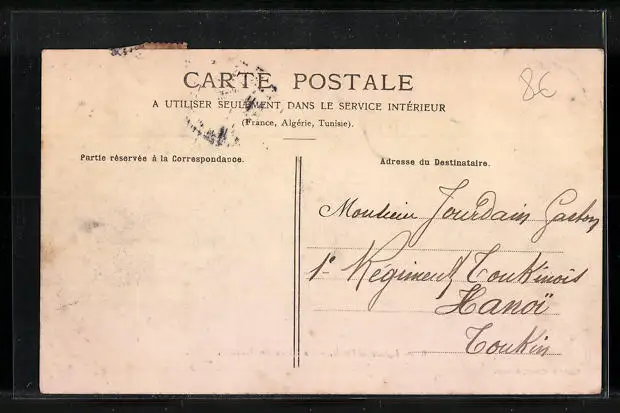 8€
CARTE POSTALE
A UTILISER SEULEMENT DANS LE SERVICE INTÉRIEUR
(France, Algérie, Tunisie).
Partie réservée à la Correspondance.
Adresse du Destinataire.
Monsieur Jourdain Gaston
1e Régiment Tonkinois
Hanoï
Tonkin